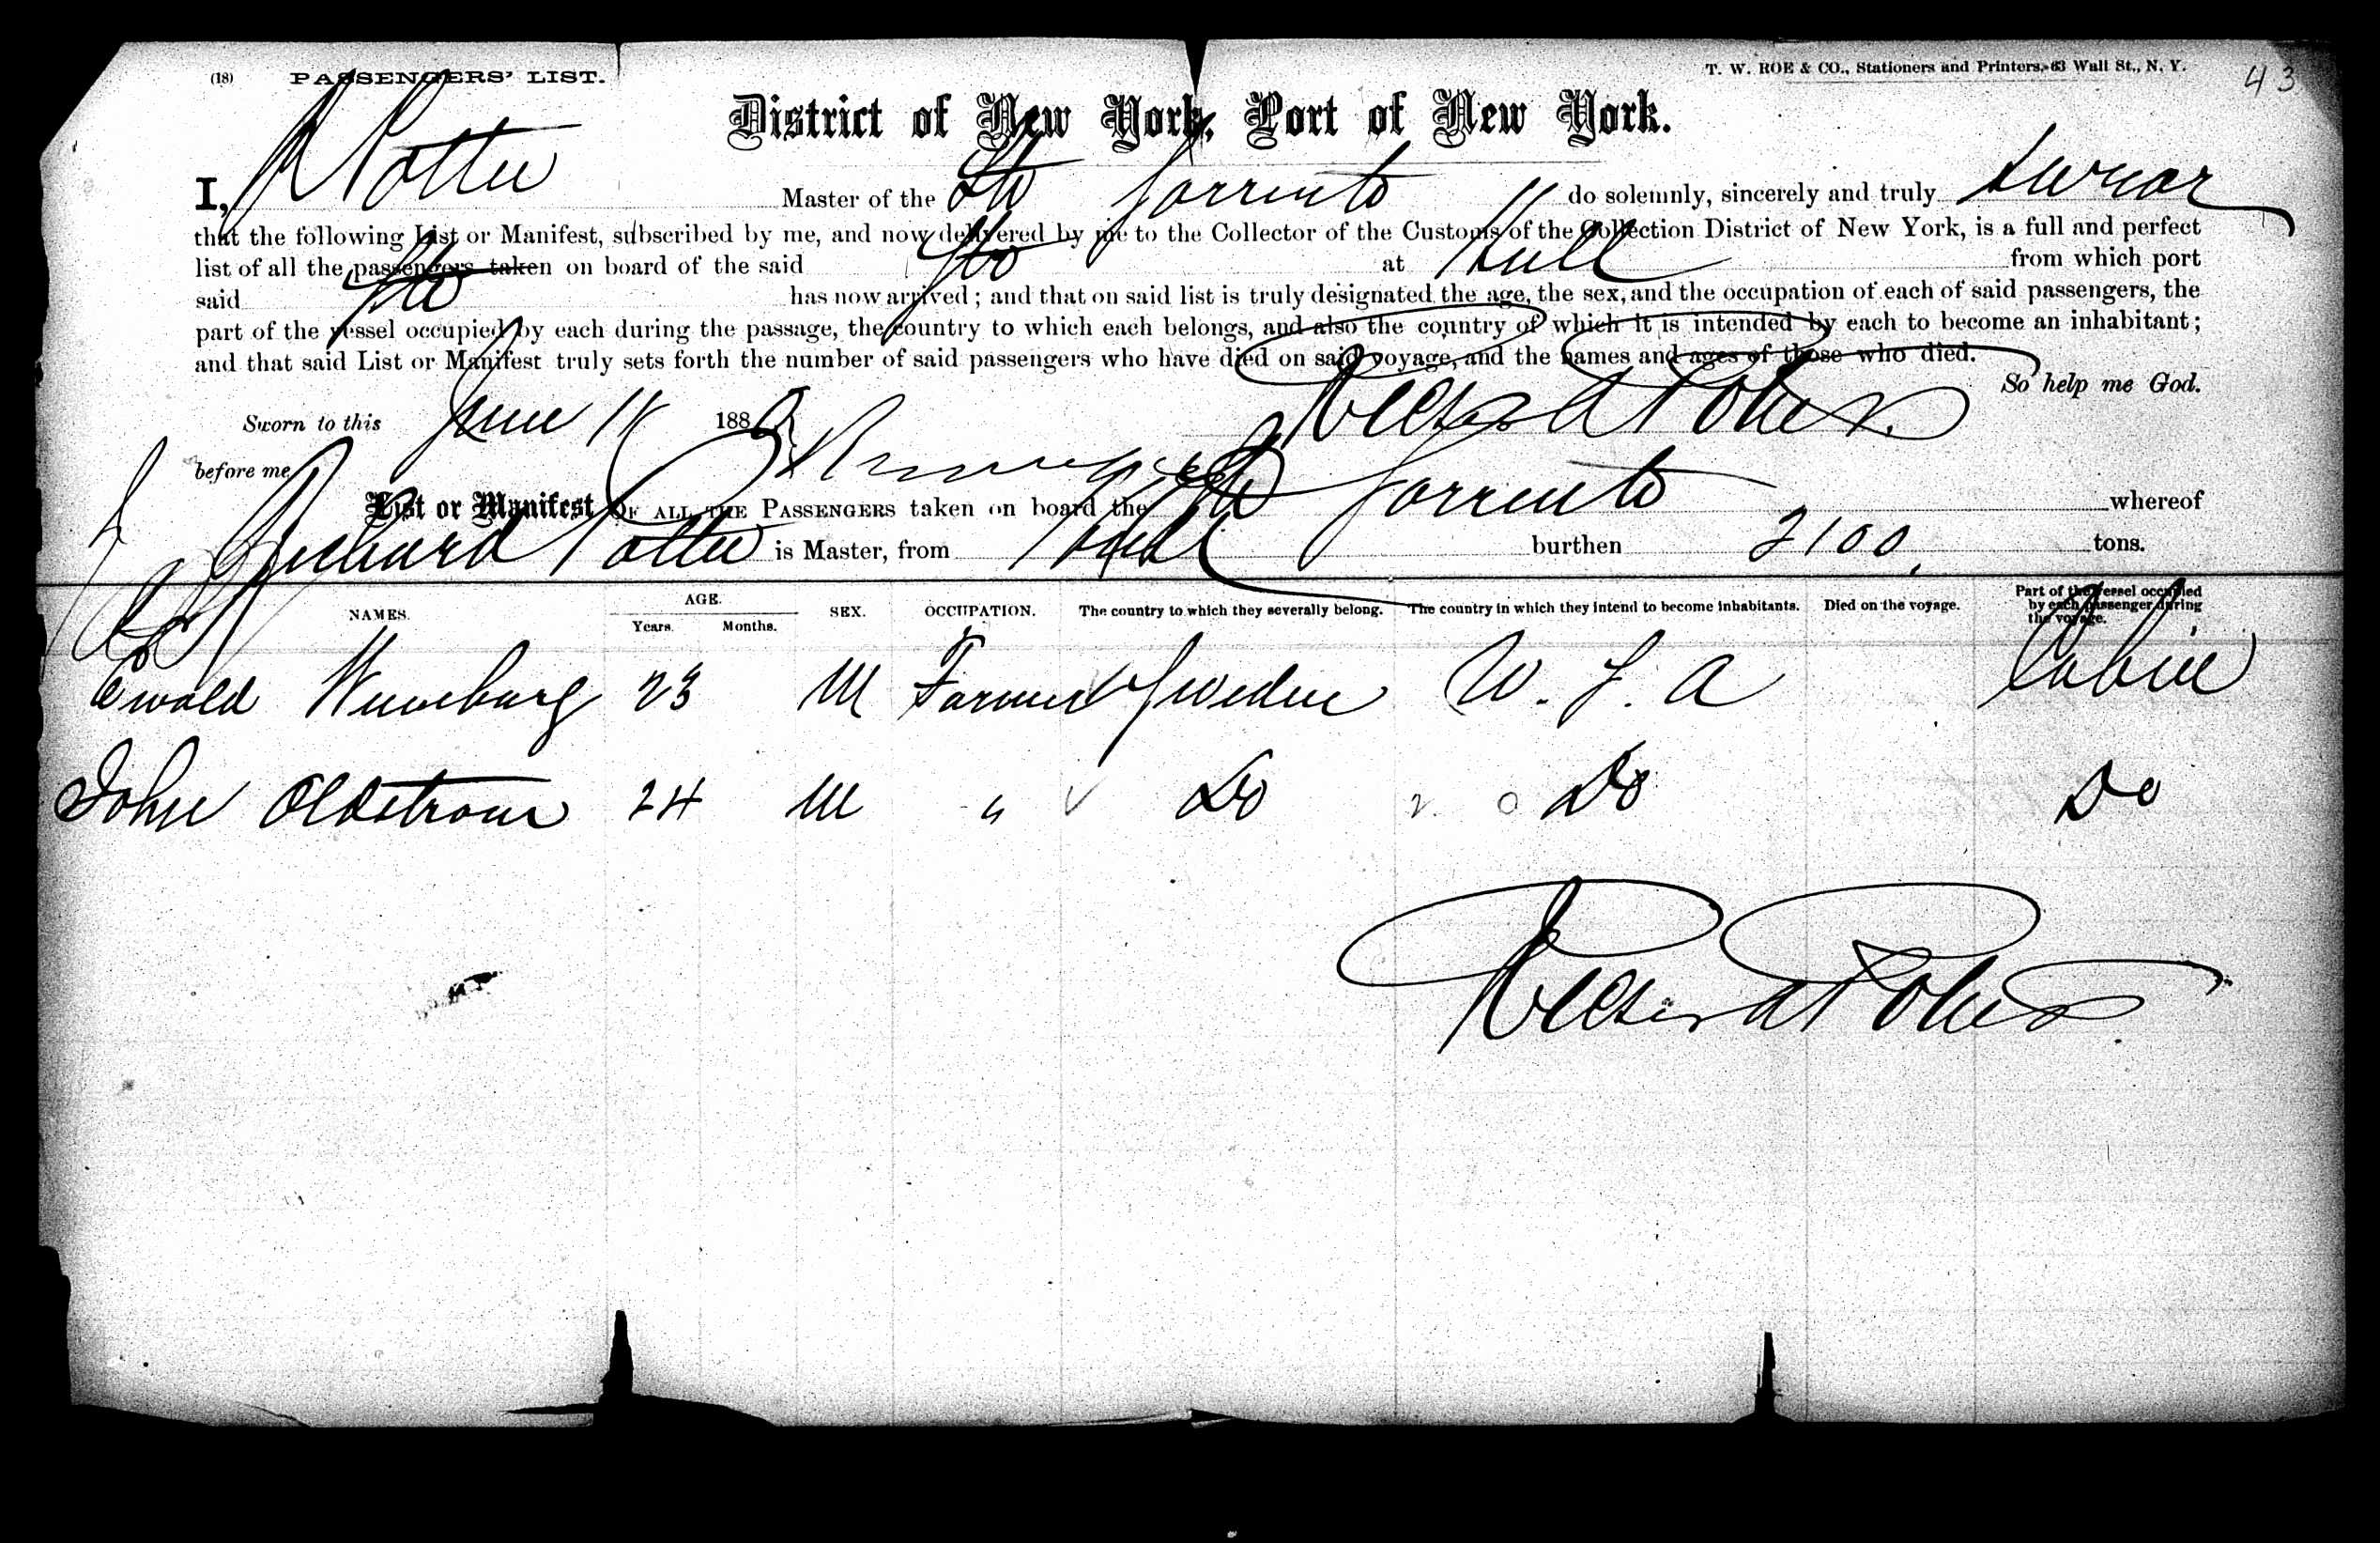 (18) PASSENGERS' LIST. T. W. ROE & CO., Stationers and Printers, 63 Wall St., N. Y. 43
District of New York, Port of New York.
I, R Potter Master of the Str Sorrento do solemnly, sincerely and truly swear
that the following List or Manifest, subscribed by me, and now delivered by me to the Collector of the Customs of the Collection District of New York, is a full and perfect
list of all the passengers taken on board of the said Str at Hull from which port
said Str has now arrived; and that on said list is truly designated the age, the sex, and the occupation of each of said passengers, the
part of the vessel occupied by each during the passage, the country to which each belongs, and also the country of which it is intended by each to become an inhabitant;
and that said List or Manifest truly sets forth the number of said passengers who have died on said voyage, and the names and ages of those who died.
So help me God.
Sworn to this June 188
before me
List or Manifest OF ALL THE PASSENGERS taken on board the Str Sorrento whereof
Richard Potter is Master, from Hull burthen 2100 tons.
NAMES. AGE. Years. Months. SEX. OCCUPATION. The country to which they severally belong. The country in which they intend to become inhabitants. Died on the voyage. Part of the vessel occupied by each passenger during the voyage.
Ewald 23 M Farmer Sweden U. S. A Cabin
John Oldstrom 24 M " Do Do Do